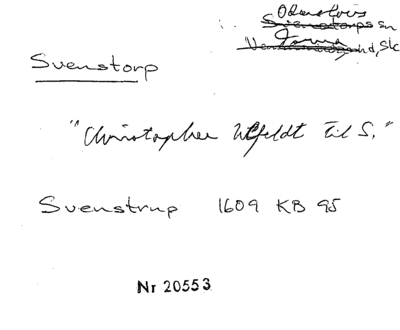 Odenslövs
Svenstorps sn
Torna
hd, Slc
Svenstorp
"Christopher Ulfeldt til S."
Svenstrup 1609 KB 95
Nr 20553